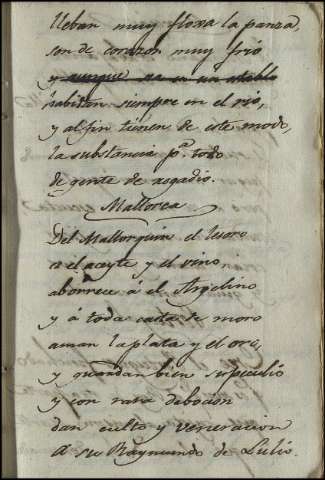 lleban muy floxa la panza,
son de corazon muy frio
y aunque
habitan siempre en el rio,
y al fin tienen de este modo,
la substancia pª. todo
de gente de regadio.
Mallorca
Del Mallorquin el tesoro
es el aceyte y el vino
aborrece á el Argelino
y á toda casta de moro
aman la plata y el oro,
y guardan bien su peculio
y con rara debocion
dan culto y veneracion
A su Raymundo de Lulio.